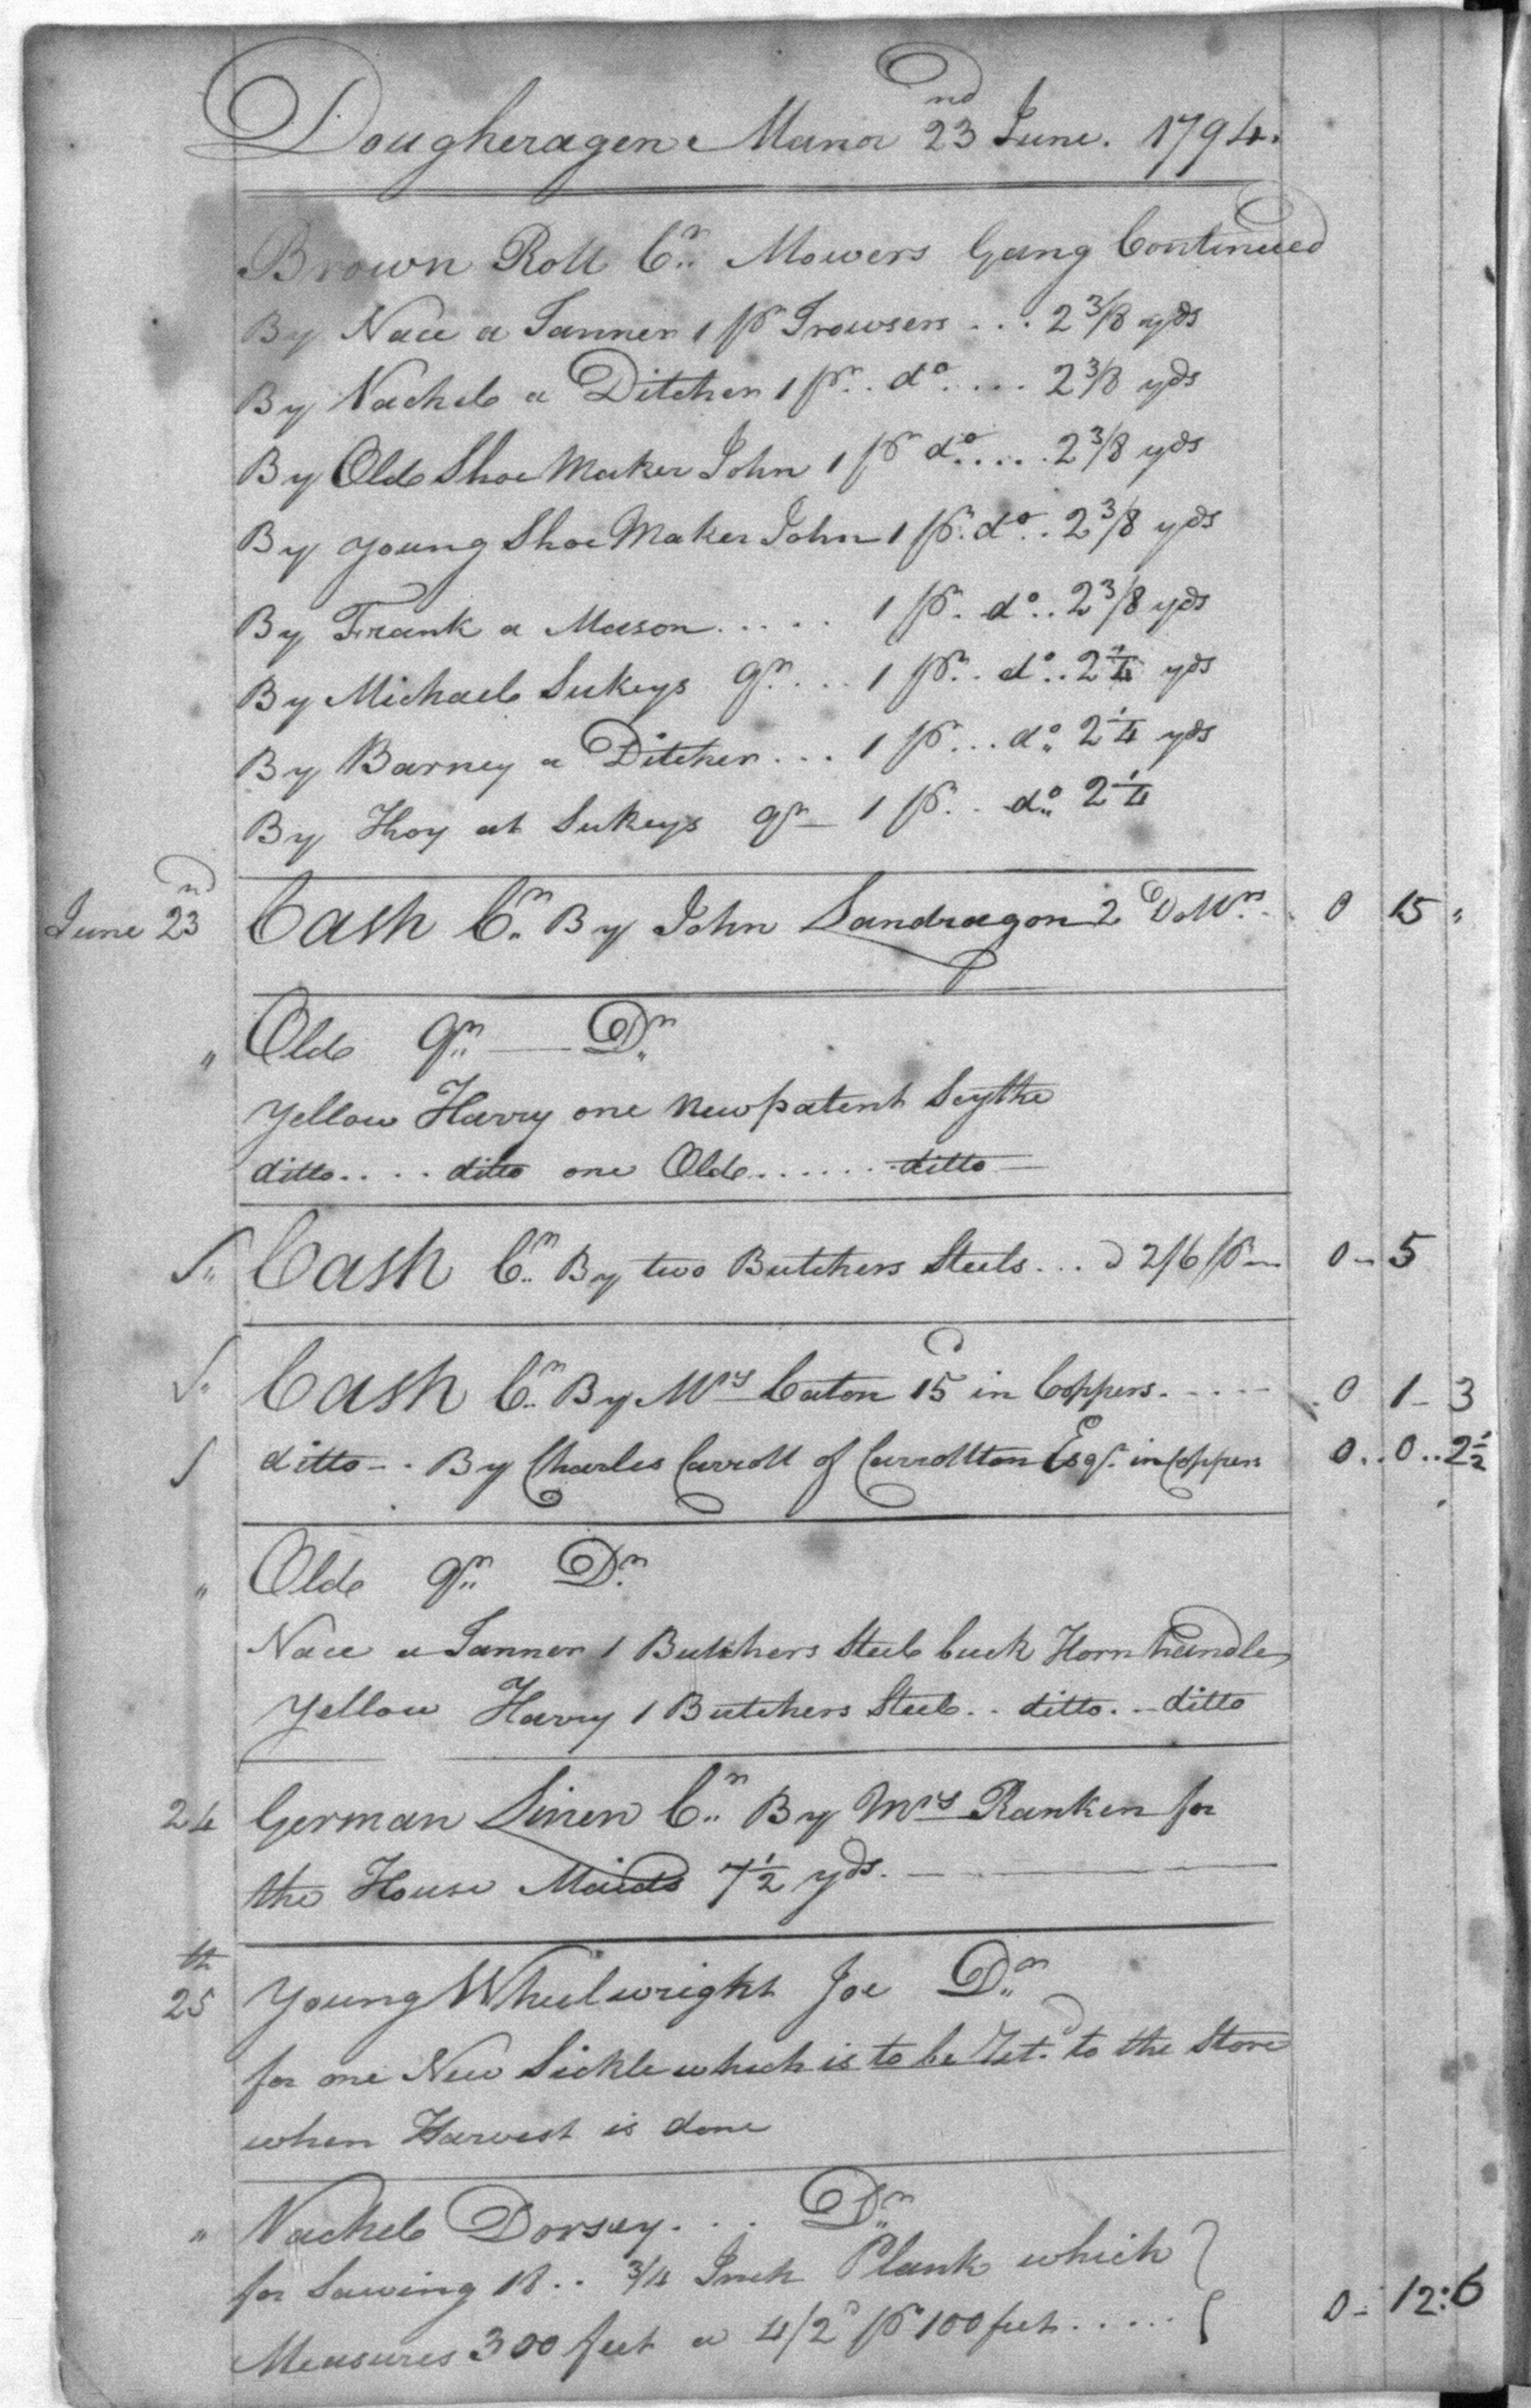 Dougheragen Manor 23nd June. 1794.
Brown Roll Cr. Mowers Gang Continued
By Nace a Tanner 1 pr Trowsers ... 2 3/8 yds
By Nachel a Ditcher 1 pr. do .... 2 3/8 yds
By Old Shoe Maker John 1 pr do ..... 2 3/8 yds
By Young Shoe Maker John 1 pr. do .. 2 3/8 yds
By Frank a Mason ..... 1 pr. do .. 2 3/8 yds
By Michael Sukeys qr ... 1 pr. do .. 2 1/4 yds
By Barney a Ditcher ... 1 pr ... do 2 1/4 yds
By Hoy at Sukeys qr - 1 pr. do 2 1/4
June 23nd Cash Cr. By John Landragon 2 Dollrs. 0 15 "
" Old qr. — Dr.
Yellow Harry one New patent Scythe
ditto .... ditto one Old ...... ditto
Cash Cr. By two Butchers Steels ... 2/6 pr 0 - 5
Cash Cr. By Mrs Caton 15d in Coppers. .... 0 1 - 3
ditto - . By Charles Carroll of Carrollton Esqr. in Coppers 0 .. 0 .. 2 1/2
" Old qr. Dr.
Nace a Tanner 1 Butchers Steel buck Horn handle
Yellow Harry 1 Butchers Steel .. ditto .. ditto
24 German Linen Cr. By Mrs Ranken for
the House Maids 7 1/2 yds.
25th Young Wheelwright Joe Dr.
for one New Sickle which is to be Ret.d to the Store
when Harvest is done
" Nachel Dorsey ... Dr.
for Sawing 18 .. 3/4 Inch Plank which
Measures 300 feet a 4/2d pr 100 feet ..... 0 - 12:6